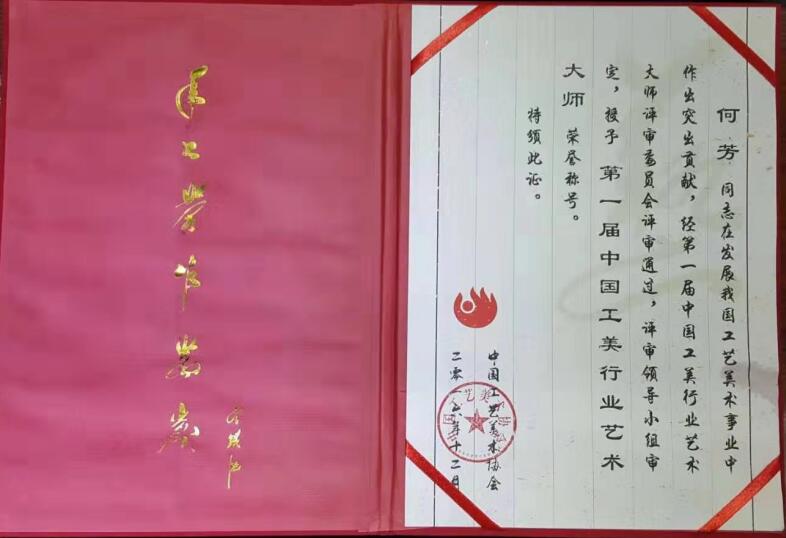 何芳 同志在发展我国工艺美术事业中
作出突出贡献，经第一届中国工美行业艺术
大师评审委员会评审通过，评审领导小组审
定，授予 第一届中国工美行业艺术
大师 荣誉称号。
特颁此证。
中国工艺美术协会
二零一六年十二月